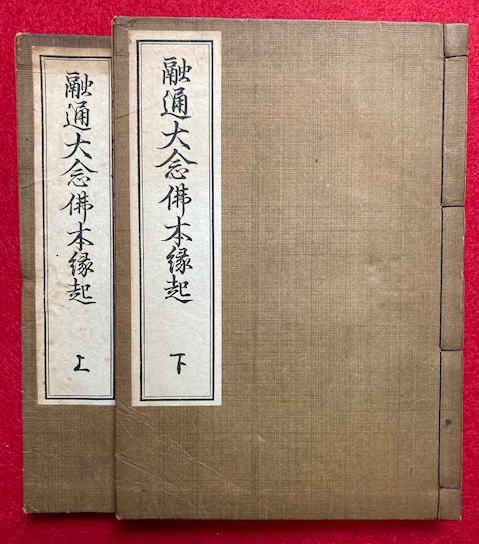 融通大念佛本縁起 上
融通大念佛本縁起 下